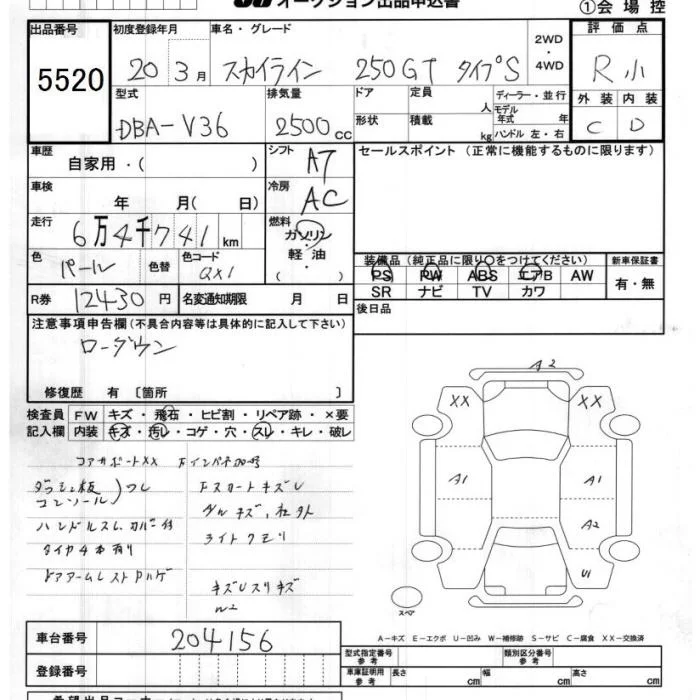 オークション出品申込書
①会場控
出品番号 5520
初度登録年月 20 3月
車名・グレード スカイライン 250GT タイプS
2WD・4WD
評価点 R小
外装 C 内装 D
型式 DBA-V36
排気量 2500cc
ドア 形状
定員 人 積載 kg
ディーラー・並行
モデル年式 年
ハンドル 左・右
車歴 自家用・( )
シフト AT
セールスポイント(正常に機能するものに限ります)
車検 年 月( 日)
冷房 AC
走行 6万4千741km
燃料 ガソリン・軽油・( )
色 パール 色替 色コード QX1
装備品(純正品に限り○をつけてください) 新車保証書
PS PW ABS エアB AW 有・無
SR ナビ TV カワ
R券 12430円 名変通知期限 月 日
後日品
注意事項申告欄(不具合内容等は具体的に記入して下さい)
ローダウン
修復歴 有〔箇所 〕
検査員 FW キズ・飛石・ヒビ割・リペア跡・×要
記入欄 内装 キズ・汚レ・コゲ・穴・スレ・キレ・破レ
コアサポートXX
ダッシュ板 コンソール
ハンドルスレ カバー付
タイヤ4本有り
ドアアームレストハゲ
Fスカートキズ
ライトクモリ
A2
XX XX
A1 A1
A2
U1
スペア
A-キズ E-エクボ U-凹み W-補修跡 S-サビ C-腐食 XX-交換済
車台番号 204156
登録番号
型式指定番号 参考 類別区分番号 参考
車庫証明用 参考 長さ cm 幅 cm 高さ cm